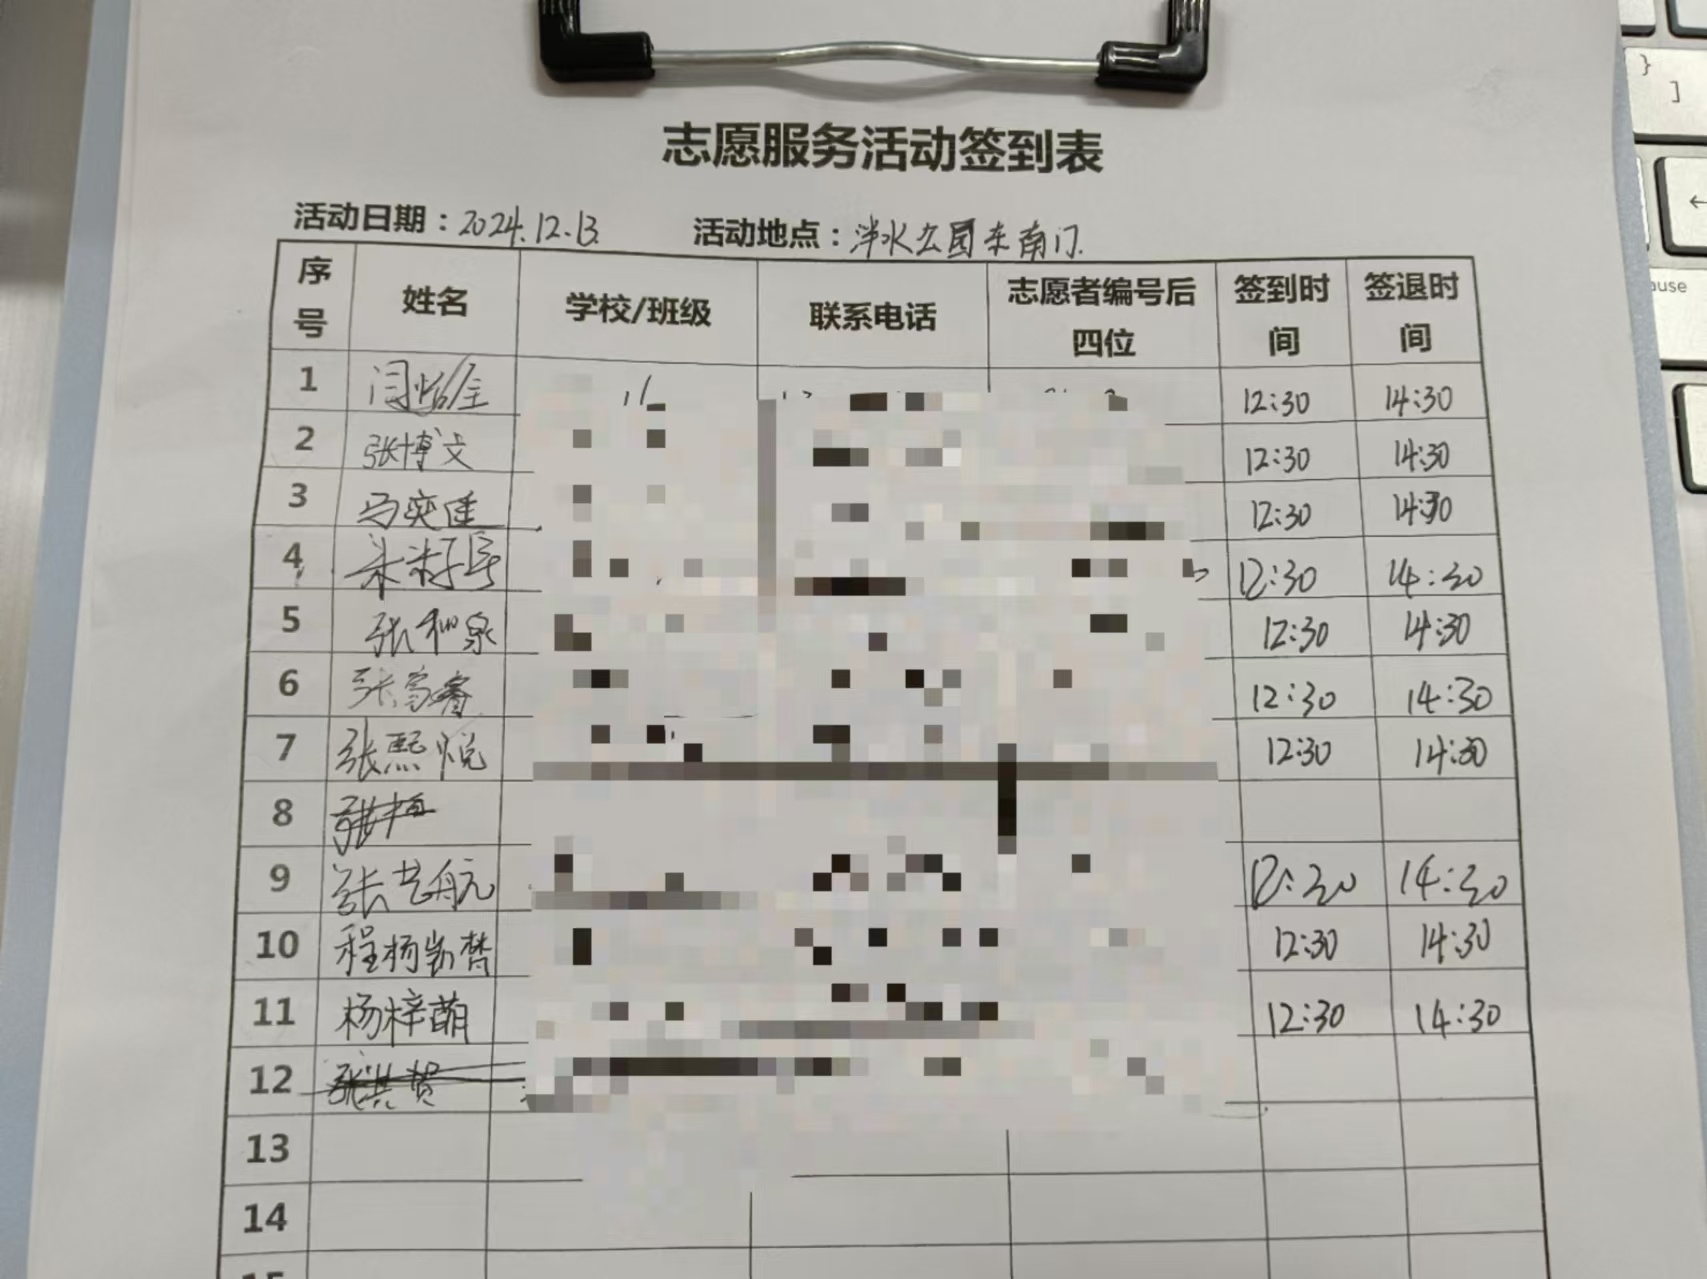 志愿服务活动签到表
活动日期：2024.12.13 活动地点：泮水公园东南门.
序号 姓名 学校/班级 联系电话 志愿者编号后四位 签到时间 签退时间
1 闫怡/全 12:30 14:30
2 张博文 12:30 14:30
3 马奕佳 12:30 14:30
4 12:30 14:30
5 张和泉 12:30 14:30
6 张富睿 12:30 14:30
7 张熙悦 12:30 14:30
8
9 张艺航 12:30 14:30
10 程杨凯楚 12:30 14:30
11 杨梓萌 12:30 14:30
12 张洪贺
13
14
}
]
ause